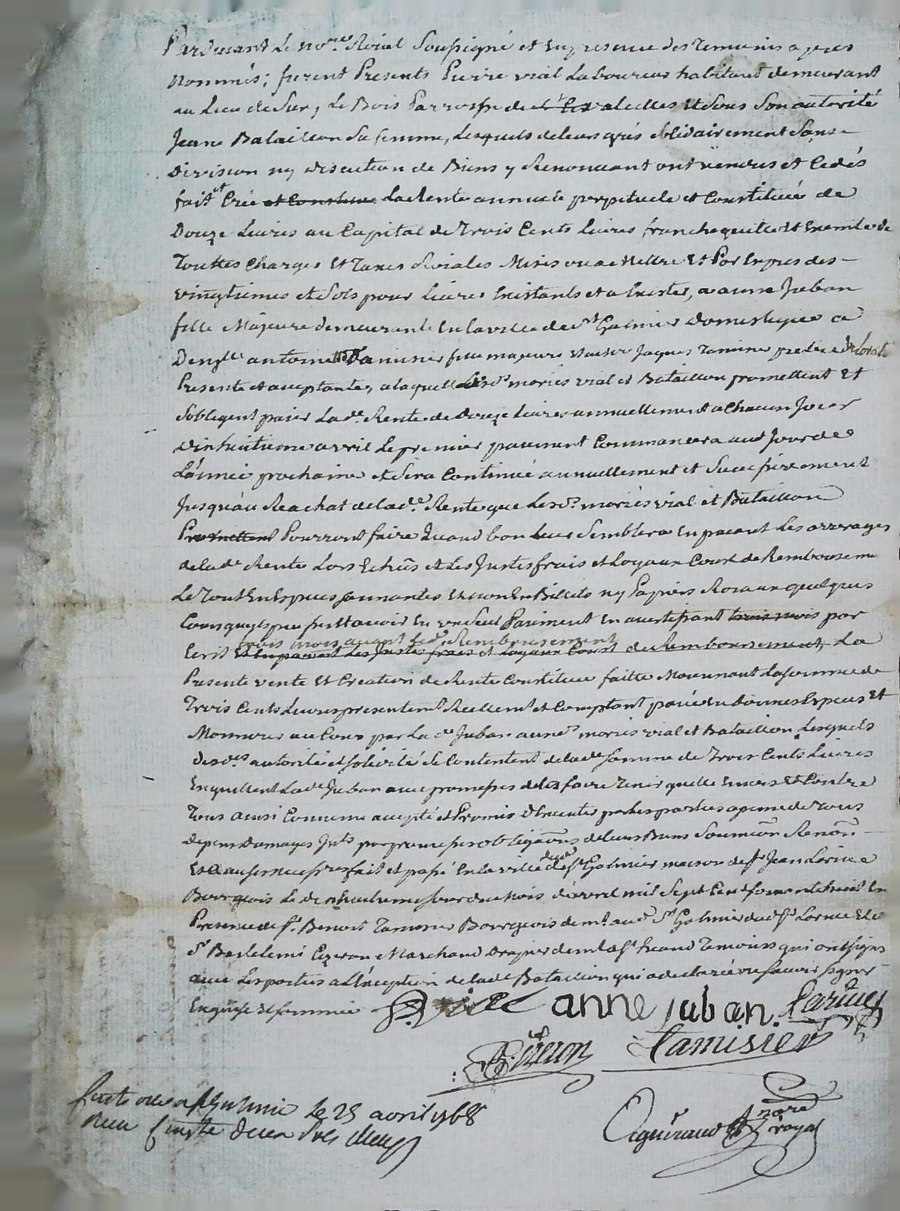 Pardevant Le no.re Roial Soussigné et En presence des Temoins apres
Nommés; furent Presents Pierre vial Laboureur habitant demeurant
au Lieu de Sury Le Bois Parroisse de valeilles Et Sous Son autorité
Jeane Bataillon Sa femme, Lesquels de leurs grés solidairement Sans
Division ny discution de Biens y Renoncant ont vendus et Cedés
fait et Créé et Constitué La Rente annuele perpetuele et Constituée de
Douze Livres au Capital de Trois Cents Livres franche quitte Et Exemte de
Touttes Charges Et Taxes Roiales Mises ou a Mettre Et Par Expres des
vingtiemes et Sols pour Livres Existants et a Exister, a anne Juban
fille Majeure demeurante En la ville de St Galmier Domestique de
Demlle antoinette Tamisier fille majeure
Presente et acceptante, a laquelle Les d. mariés vial et Bataillon promettent Et
Sobligent paier La de. Rente de douze Livres annuellement a Chacun Jour
dixhuitieme avril Le premier paiement Commancera aud Jour de
L'année prochaine et Sera Continué annuellement et Successivement
Jusqu'au Rachat de la de. Rente que Les d. mariés vial et Bataillon
Promettent Pourront faire Quand bon Leur Semblera En paiant Les arrerages
de la de Rente Lors Echus et Les Justes frais et Loyaux Cout de Remboursem
Le Tout En Espèces sonnantes Et non En Billets ny Papiers Roiaux quelques
Consquens peu fut avoir En un Seul Paiment En avertissant trois mois par
trois mois avant led. Remboursement
Ecrit Et En paiant Les Justes frais et Loyaux Coust de Remboursement, La
Presente vente Et Création de Rente Constituée faitte Moienant La somme de
Trois Cents Livres presentemt Reellemt et Comptant paiée en bonnes Especes Et
Monnoies au Cours par La de Juban aux d. mariés vial et Bataillon Lesquels
desd. autorité et solidité Se Contentent de lade somme de Trois Cents Livres
En quittent Lade Juban avec promesses de Les faire Tenir quitte Envers Et Contre
Tous ainsi Convenu accepté et Promis d'Executer par les parties a peine de Tous
Depens Domages Intts obligaõns de leurs Biens Soumiõn Renõn
Et Clauses fait et passé En la ville de St Galmier maison de Sr Jean Larive
Bourgeois Le dixhuitieme Jour du Mois d'avril mil Sept Cent soixante huit En
Presence de Sr. Benoit Tamisier Bourgeois demt aud. St Galmier dud Sr Larive Et de
Sr Bartelemi Eyeron Marchand Drapier demt qui ont signé
avec Les parties a L'Exception de lade Bataillon qui a declarée ne scavoir signer
Enquise Et sommée vial anne juban. Larive
B. Eyeron Tamisier
Controllé a St Galmier Le 25 avril 1768
Reçu
Aguiraud nore royal